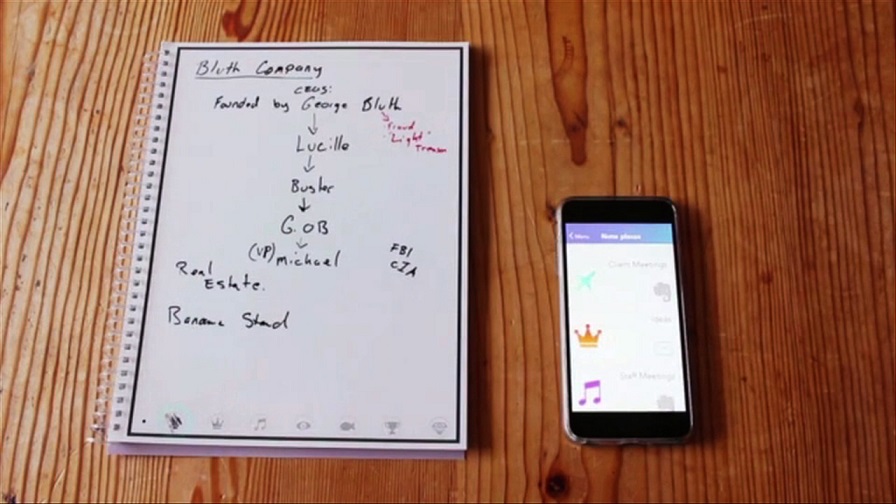 Bluth Company
CEOs:
Founded by George Bluth
Fraud
"Light"
Treason
Lucille
Buster
G.OB
(VP) Michael
FBI
CIA
Real
Estate.
Banana Stand
Menu
Client Meetings
Ideas
Staff Meetings